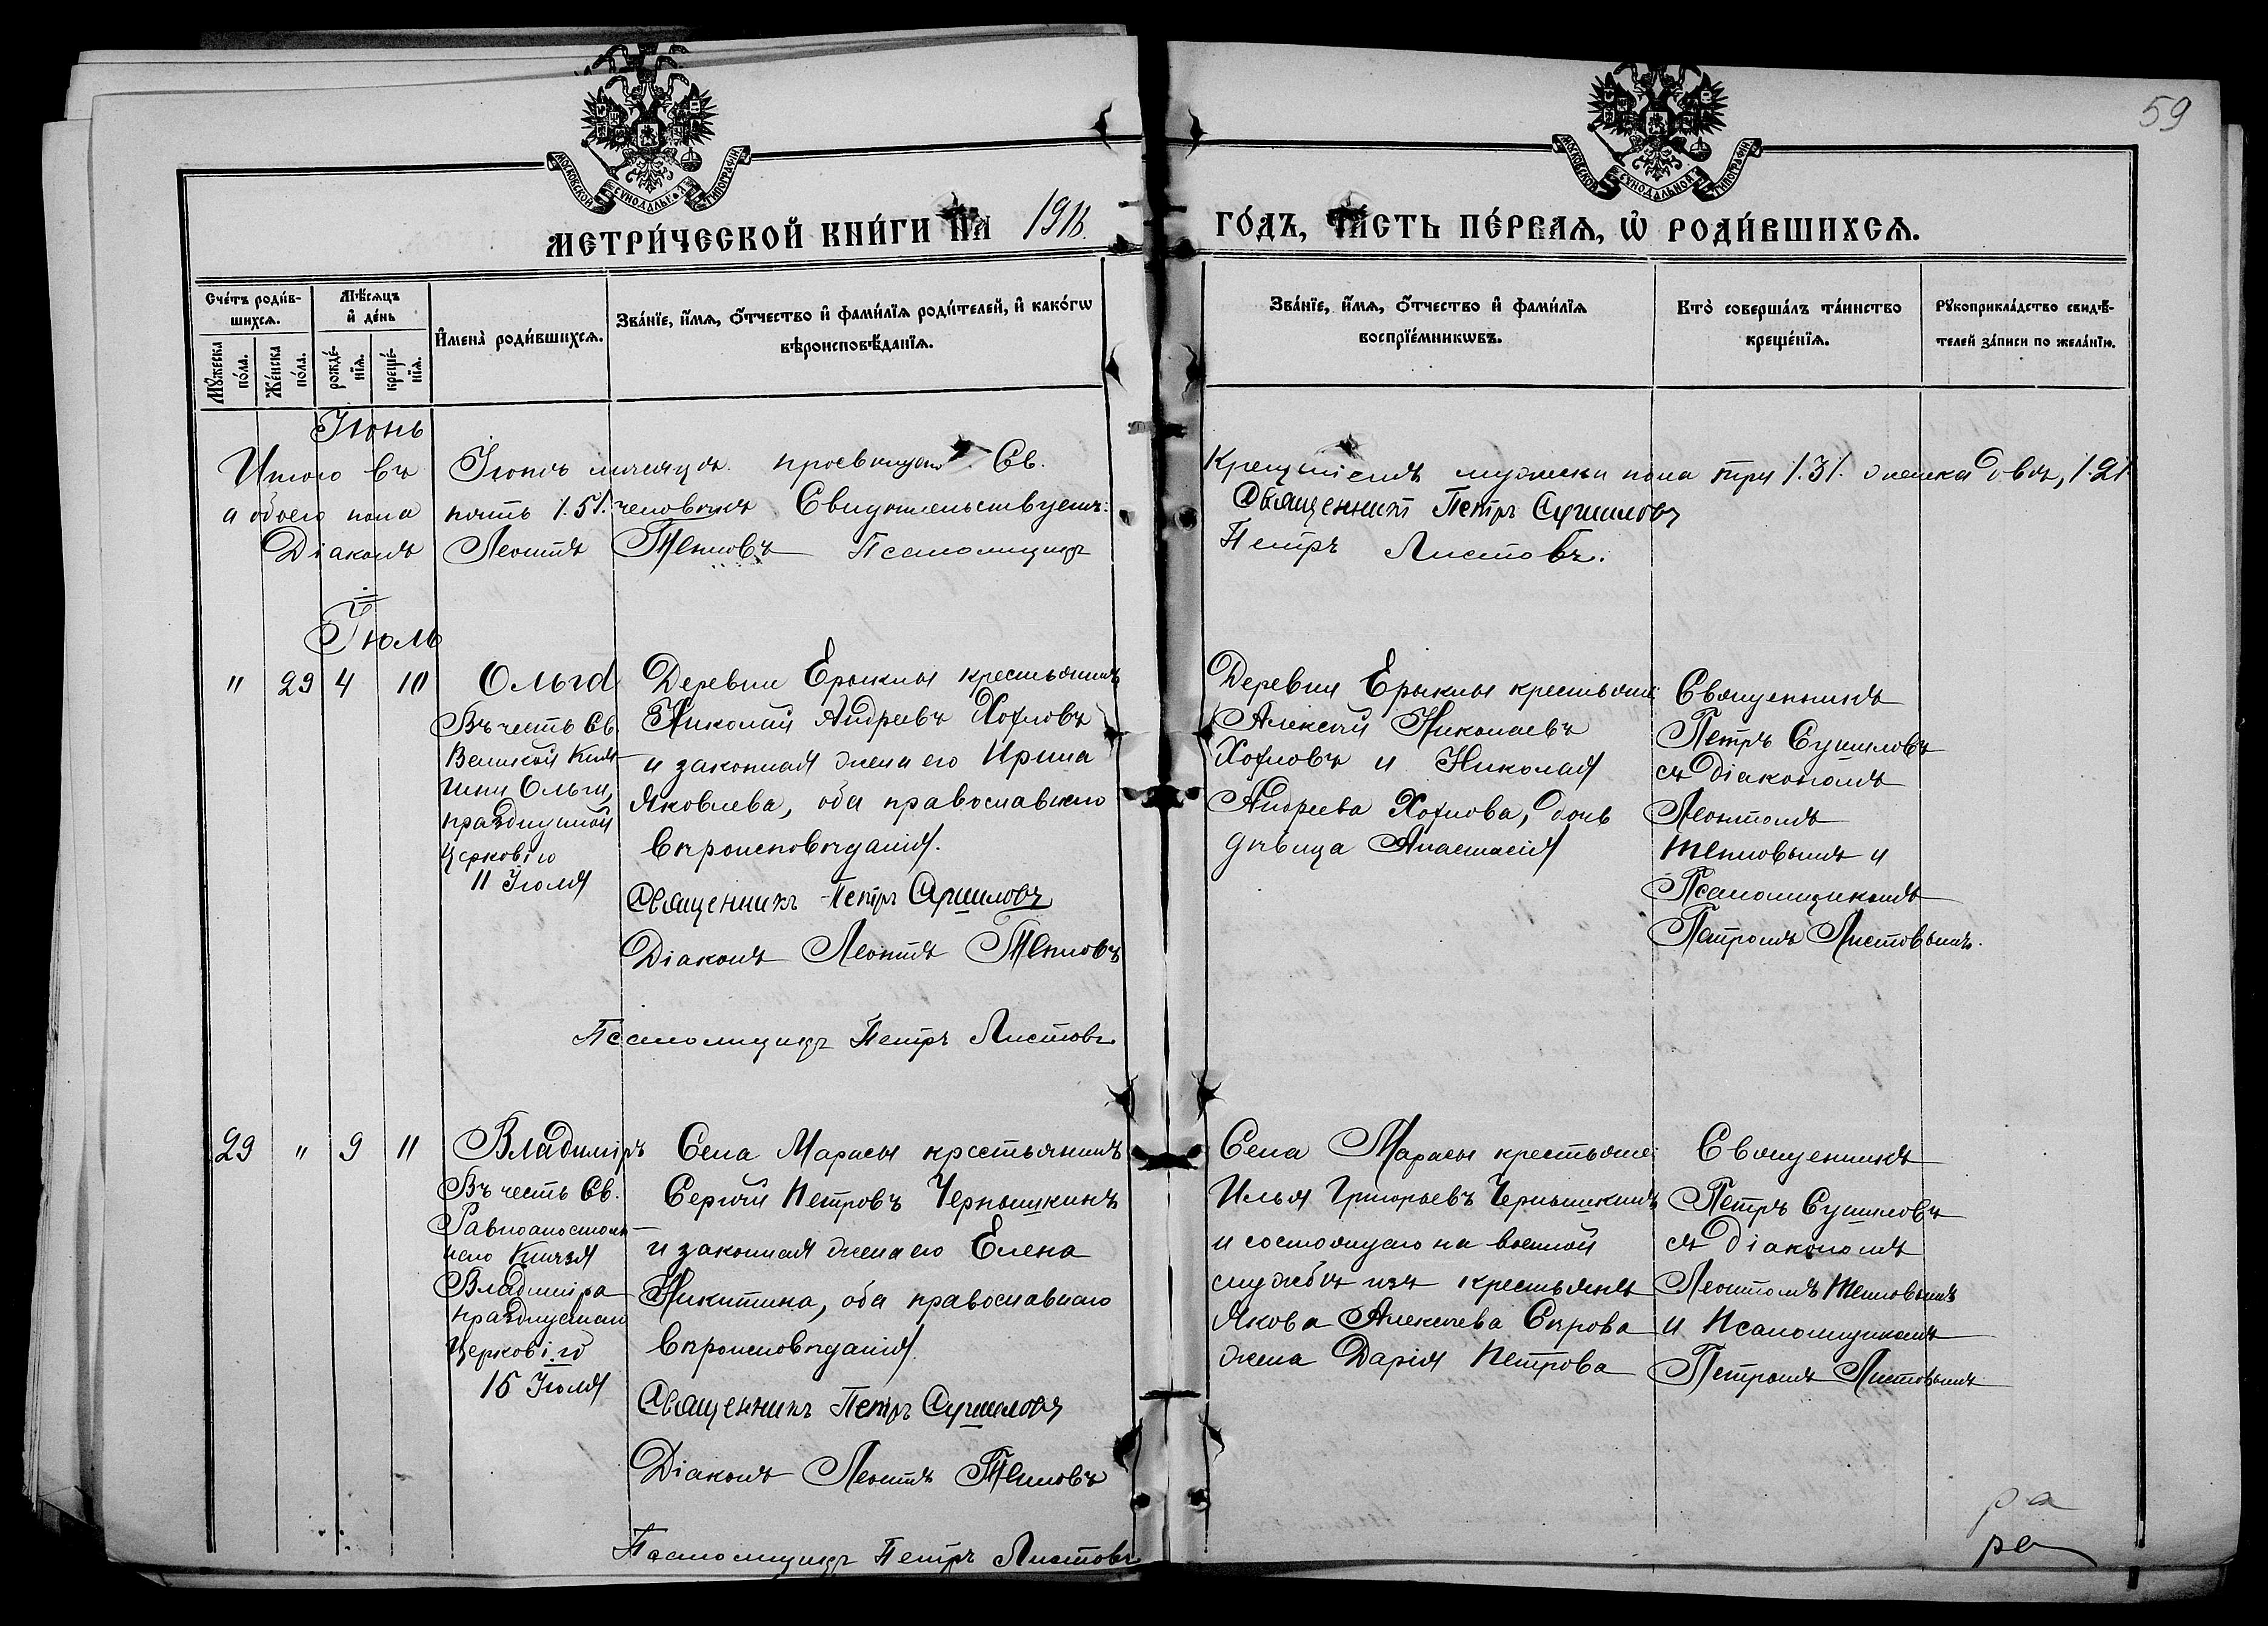 59
МОСКОВСКОЙ СѴНОДАЛЬНОЙ ТИПОГРАФІИ
МОСКОВСКОЙ СѴНОДАЛЬНОЙ ТИПОГРАФІИ
МЕТРИ́ЧЕСКОЙ КНИ́ГИ НА 1916. ГО́ДЪ, ЧА́СТЬ ПЕ́РВАЯ, Ѡ РОДИ́ВШИХСЯ.
Сче́тъ роди́в-
шихся.
Мѣ́сяцъ
и де́нь
Мꙋ́жеска
по́ла.
Же́нска
по́ла.
рожде́-
нїя.
креще́-
нїя.
Имена̀ роди́вшихся.
Зва́нїе, и́мя, ѻ҆́тчество и фами́лїя роди́телей, и како́гѡ
вѣроисповѣ́данїя.
Зва́нїе, и́мя, ѻ҆́тчество и фами́лїя
воспрїе́мникѡвъ.
Кто̀ соверша́лъ та́инство
креще́нїя.
Рꙋкоприкла́дство свидѣ́-
телей за́писи по жела́нїю.
Іюнь
Итого въ Іюнѣ мѣсяцѣ просвѣщено Св. Крещеніемъ мужеска пола три /.3/. женска двѣ, /.2/
а обоего пола пять /.5/. человѣкъ Свидѣтельствуемъ: Священникъ Петръ Сушиловъ
Діаконъ Леонтъ Тепловъ Псаломщикъ Петръ Листовъ.
Іюль
" 29 4 10
Ольга
Въ честь Св.
Великой Кня-
гини Ольги,
празднуемой
Церковію
11 Іюля
Деревни Ерыклы крестьянинъ
Николай Андреевъ Хохловъ
и законная жена его Ирина
Яковлева, оба православнаго
вѣроисповѣданія.
Священникъ Петръ Сушиловъ
Діаконъ Леонтъ Тепловъ
Псаломщикъ Петръ Листовъ
Деревни Ерыклы крестьян:
Алексѣй Николаевъ
Хохловъ и Николая
Андреева Хохлова, дочь
дѣвица Анастасія
Священникъ
Петръ Сушиловъ
съ діакономъ
Леонтомъ
Тепловымъ и
Псаломщикомъ
Петромъ Листовымъ.
29 " 9 11
Владиміръ
Въ честь Св.
Равноапостоль-
наго Князя
Владиміра
празднуемаго
Церковію
15 Іюля
Села Марасы крестьянинъ
Сергѣй Петровъ Чернышкинъ
и законная жена его Елена
Никитина, оба православнаго
вѣроисповѣданія.
Священникъ Петръ Сушиловъ
Діаконъ Леонтъ Тепловъ
Псаломщикъ Петръ Листовъ
Села Марасы крестьяне:
Илья Григорьевъ Чернышкинъ
и состоящаго на военной
службѣ изъ крестьянъ
Якова Алексѣева Сѣрова
жена Дарія Петрова
Священникъ
Петръ Сушиловъ
съ діакономъ
Леонтомъ Тепловымъ
и Псаломщикомъ
Петромъ Листовымъ